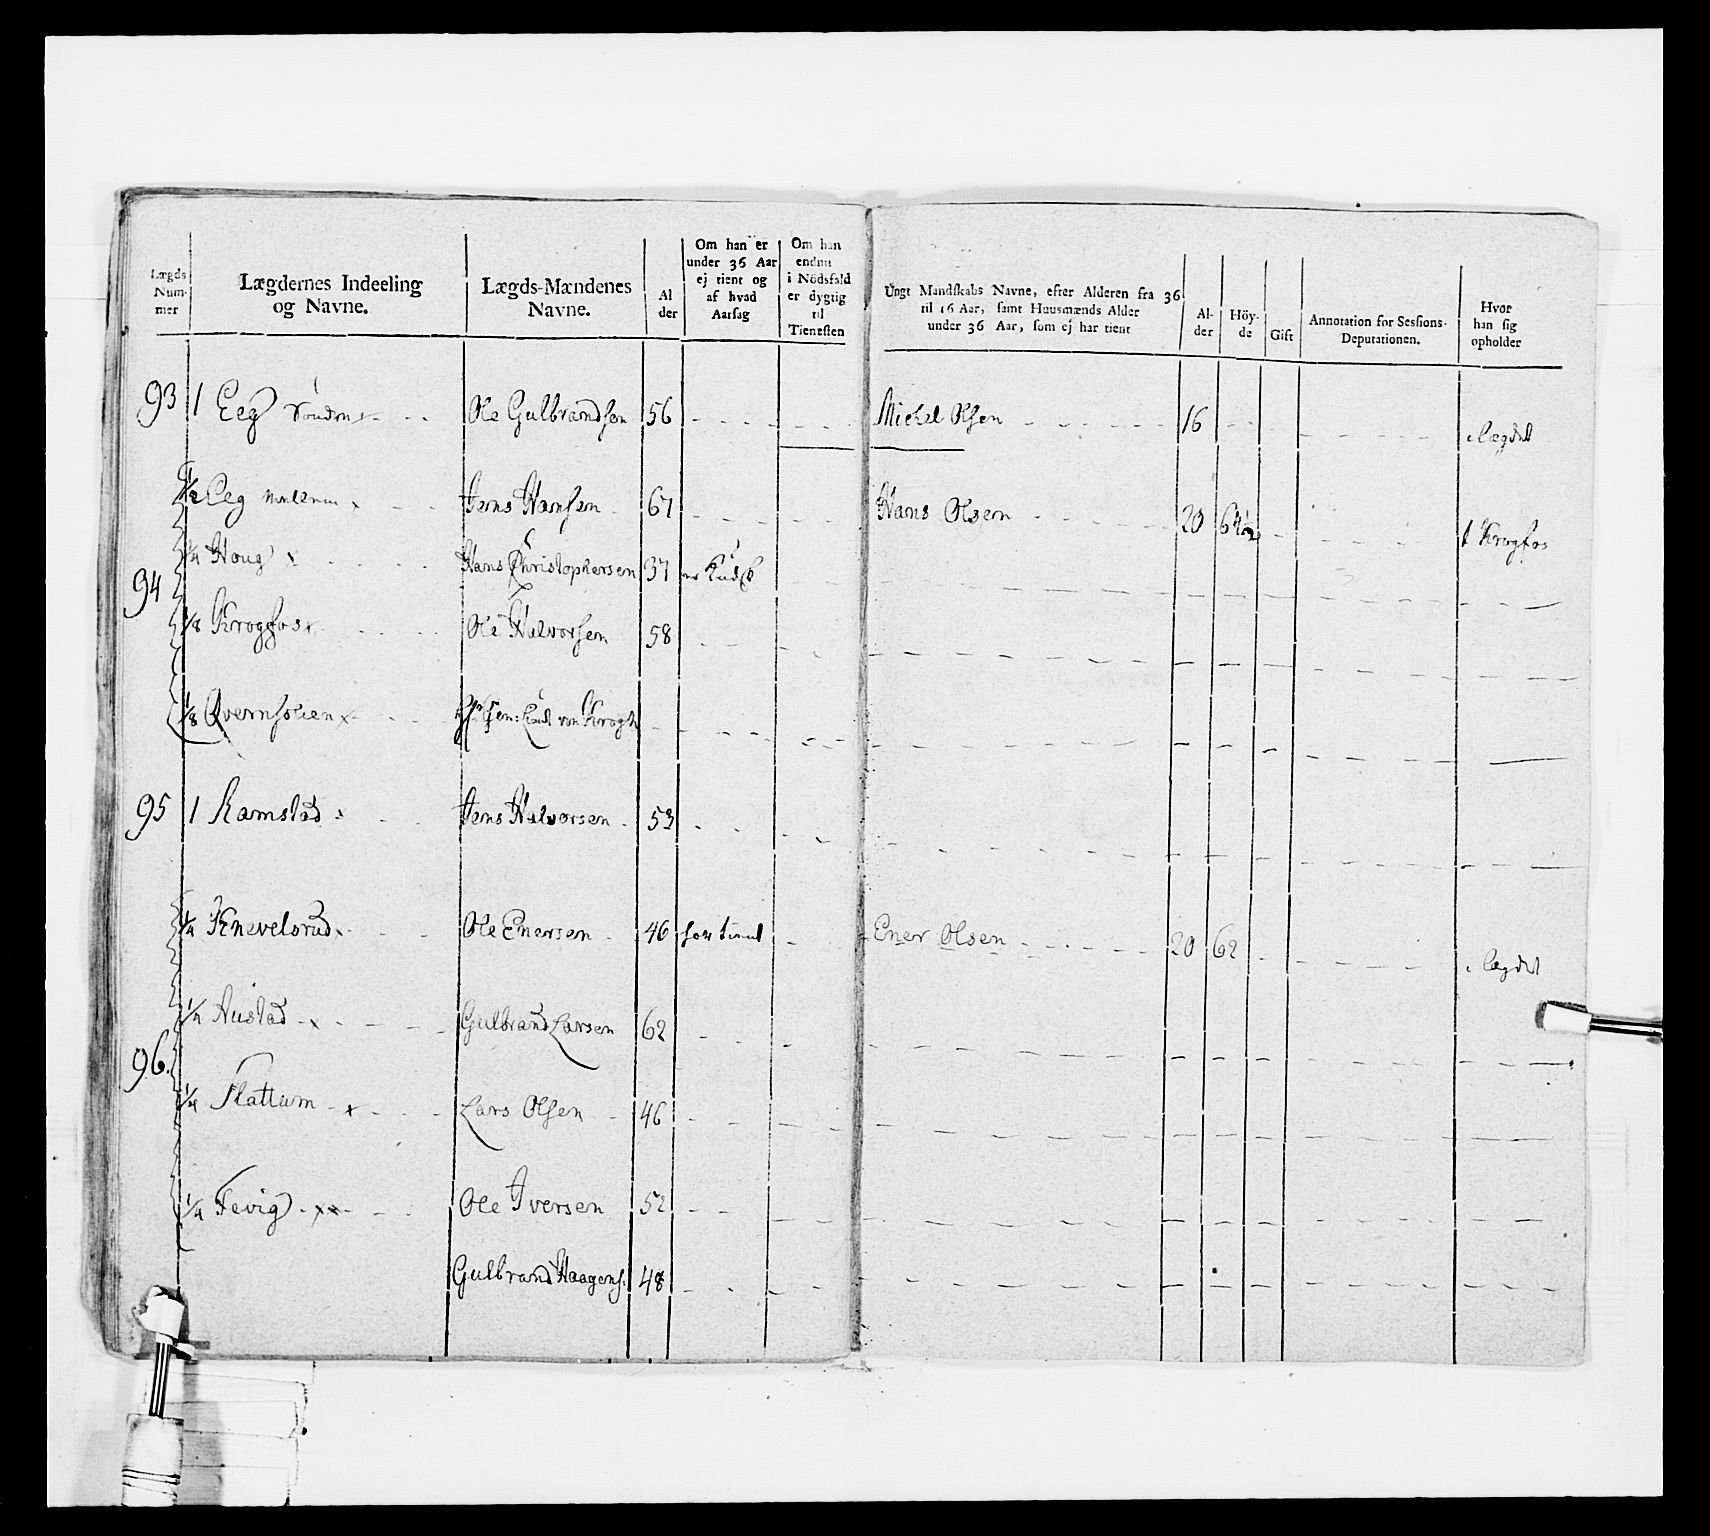 Lægds Num- mer
Lægdernes Indeeling og Navne.
Lægds-Mændenes Navne.
Al der
Om han er under 36 Aar ej tient og af hvad Aarsag
Om han endnu i Nödsfald er dygtig til Tienesten
Ungt Mandskabs Navne, efter Alderen fra 36 til 16 Aar, samt Huusmænds Alder under 36 Aar, som ej har tient
Al- der
Höy- de
Gift
Annotation for Sessions- Deputationen.
Hvor han sig opholder
93 1 Eeg Ole Gulbrandsen 56 Michel Olsen 16 i lægdet
1/2 Eeg Jens Hansen 67 Hans Olsen 20 i Krogfos
1/4 Houg Hans Christophersen 37
94
1/8 Krogfos Ole Halvorsen 58
1/8 Qvernfolien von Krogh
95 1 Ramstad Jens Halvorsen 53
1/4 Knevelsrud Ole Enersen 46 har tient Ener Olsen 20 62 i lægdet
1/4 Austad Gulbrand Larsen 62
96.
1/4 Flattum Lars Olsen 46
1/4 Fevig Ole Iversen 52
Gulbrand Haagens. 48